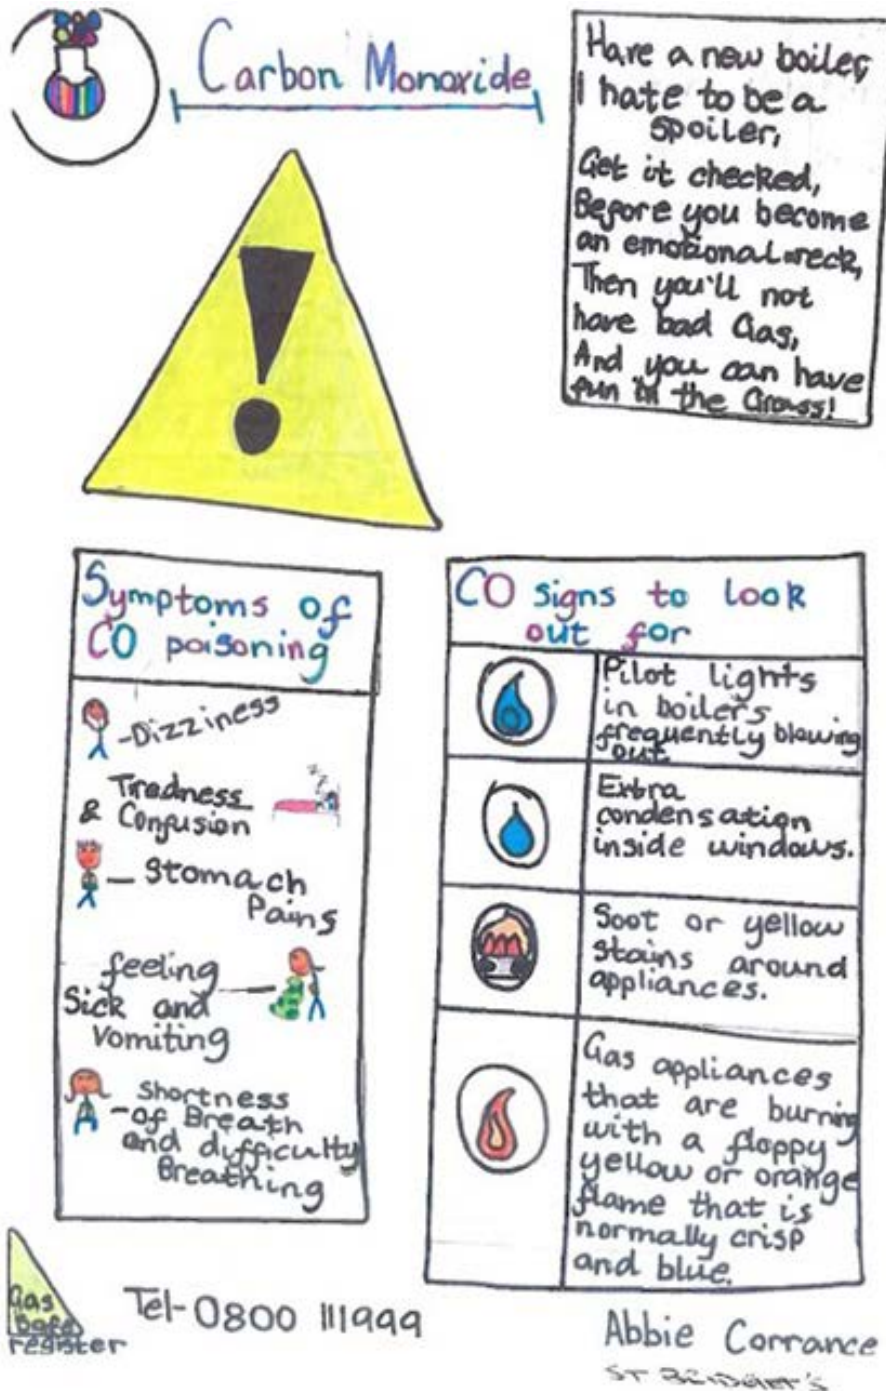 Carbon Monoxide
Have a new boiler,
I hate to be a
spoiler,
Get it checked,
Before you become
an emotional wreck,
Then you'll not
have bad Gas,
And you can have
fun in the Grass!
Symptoms of
CO poisoning
-Dizziness
Tiredness
& Confusion
- Stomach
Pains
feeling
Sick and
Vomiting
- Shortness
of Breath
and difficulty
Breathing
CO signs to look
out for
Pilot lights
in boilers
frequently blowing
out
Extra
condensation
inside windows.
Soot or yellow
stains around
appliances.
Gas appliances
that are burning
with a floppy
yellow or orange
flame that is
normally crisp
and blue.
Gas
Safe
register
Tel-0800 111999
Abbie Corrance
ST